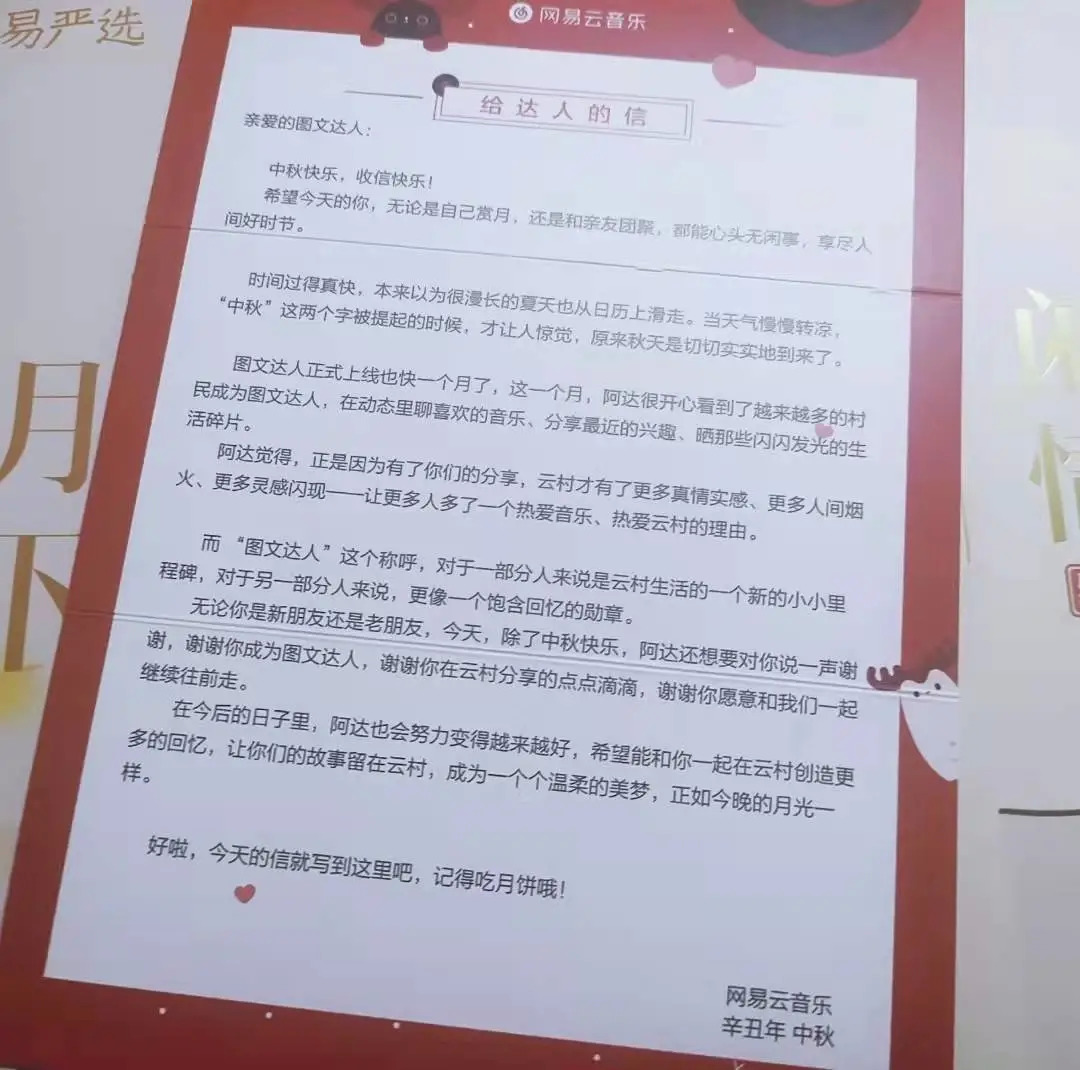 易严选
网易云音乐
给达人的信
亲爱的图文达人：
中秋快乐，收信快乐！
希望今天的你，无论是自己赏月，还是和亲友团聚，都能心头无闲事，享尽人
间好时节。
时间过得真快，本来以为很漫长的夏天也从日历上滑走。当天气慢慢转凉，
“中秋”这两个字被提起的时候，才让人惊觉，原来秋天是切切实实地到来了。
图文达人正式上线也快一个月了，这一个月，阿达很开心看到了越来越多的村
民成为图文达人，在动态里聊喜欢的音乐、分享最近的兴趣、晒那些闪闪发光的生
活碎片。
阿达觉得，正是因为有了你们的分享，云村才有了更多真情实感、更多人间烟
火、更多灵感闪现——让更多人多了一个热爱音乐、热爱云村的理由。
而 “图文达人”这个称呼，对于一部分人来说是云村生活的一个新的小小里
程碑，对于另一部分人来说，更像一个饱含回忆的勋章。
无论你是新朋友还是老朋友，今天，除了中秋快乐，阿达还想要对你说一声谢
谢，谢谢你成为图文达人，谢谢你在云村分享的点点滴滴，谢谢你愿意和我们一起
继续往前走。
在今后的日子里，阿达也会努力变得越来越好，希望能和你一起在云村创造更
多的回忆，让你们的故事留在云村，成为一个个温柔的美梦，正如今晚的月光一
样。
好啦，今天的信就写到这里吧，记得吃月饼哦！
网易云音乐
辛丑年 中秋
月
下